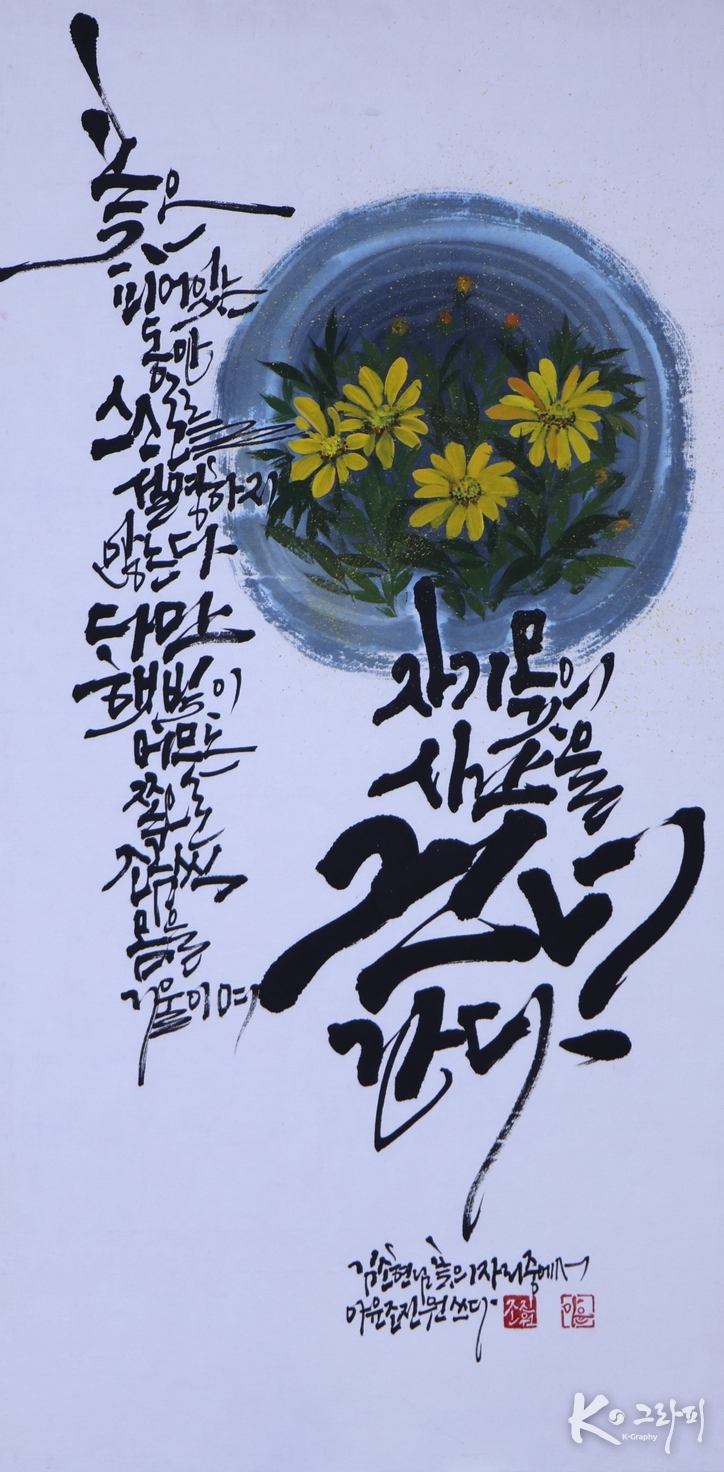 꽃은
피어있는
동안
스스로를
설명하지
않는다
다만
햇빛이
머무는
쪽으로
조금씩
몸을
기울이며
자기 몫의
시간을
건너
간다.
김소현님 꽃의 자리 중에서
아윤 조진원 쓰다
K그라피
K-Graphy